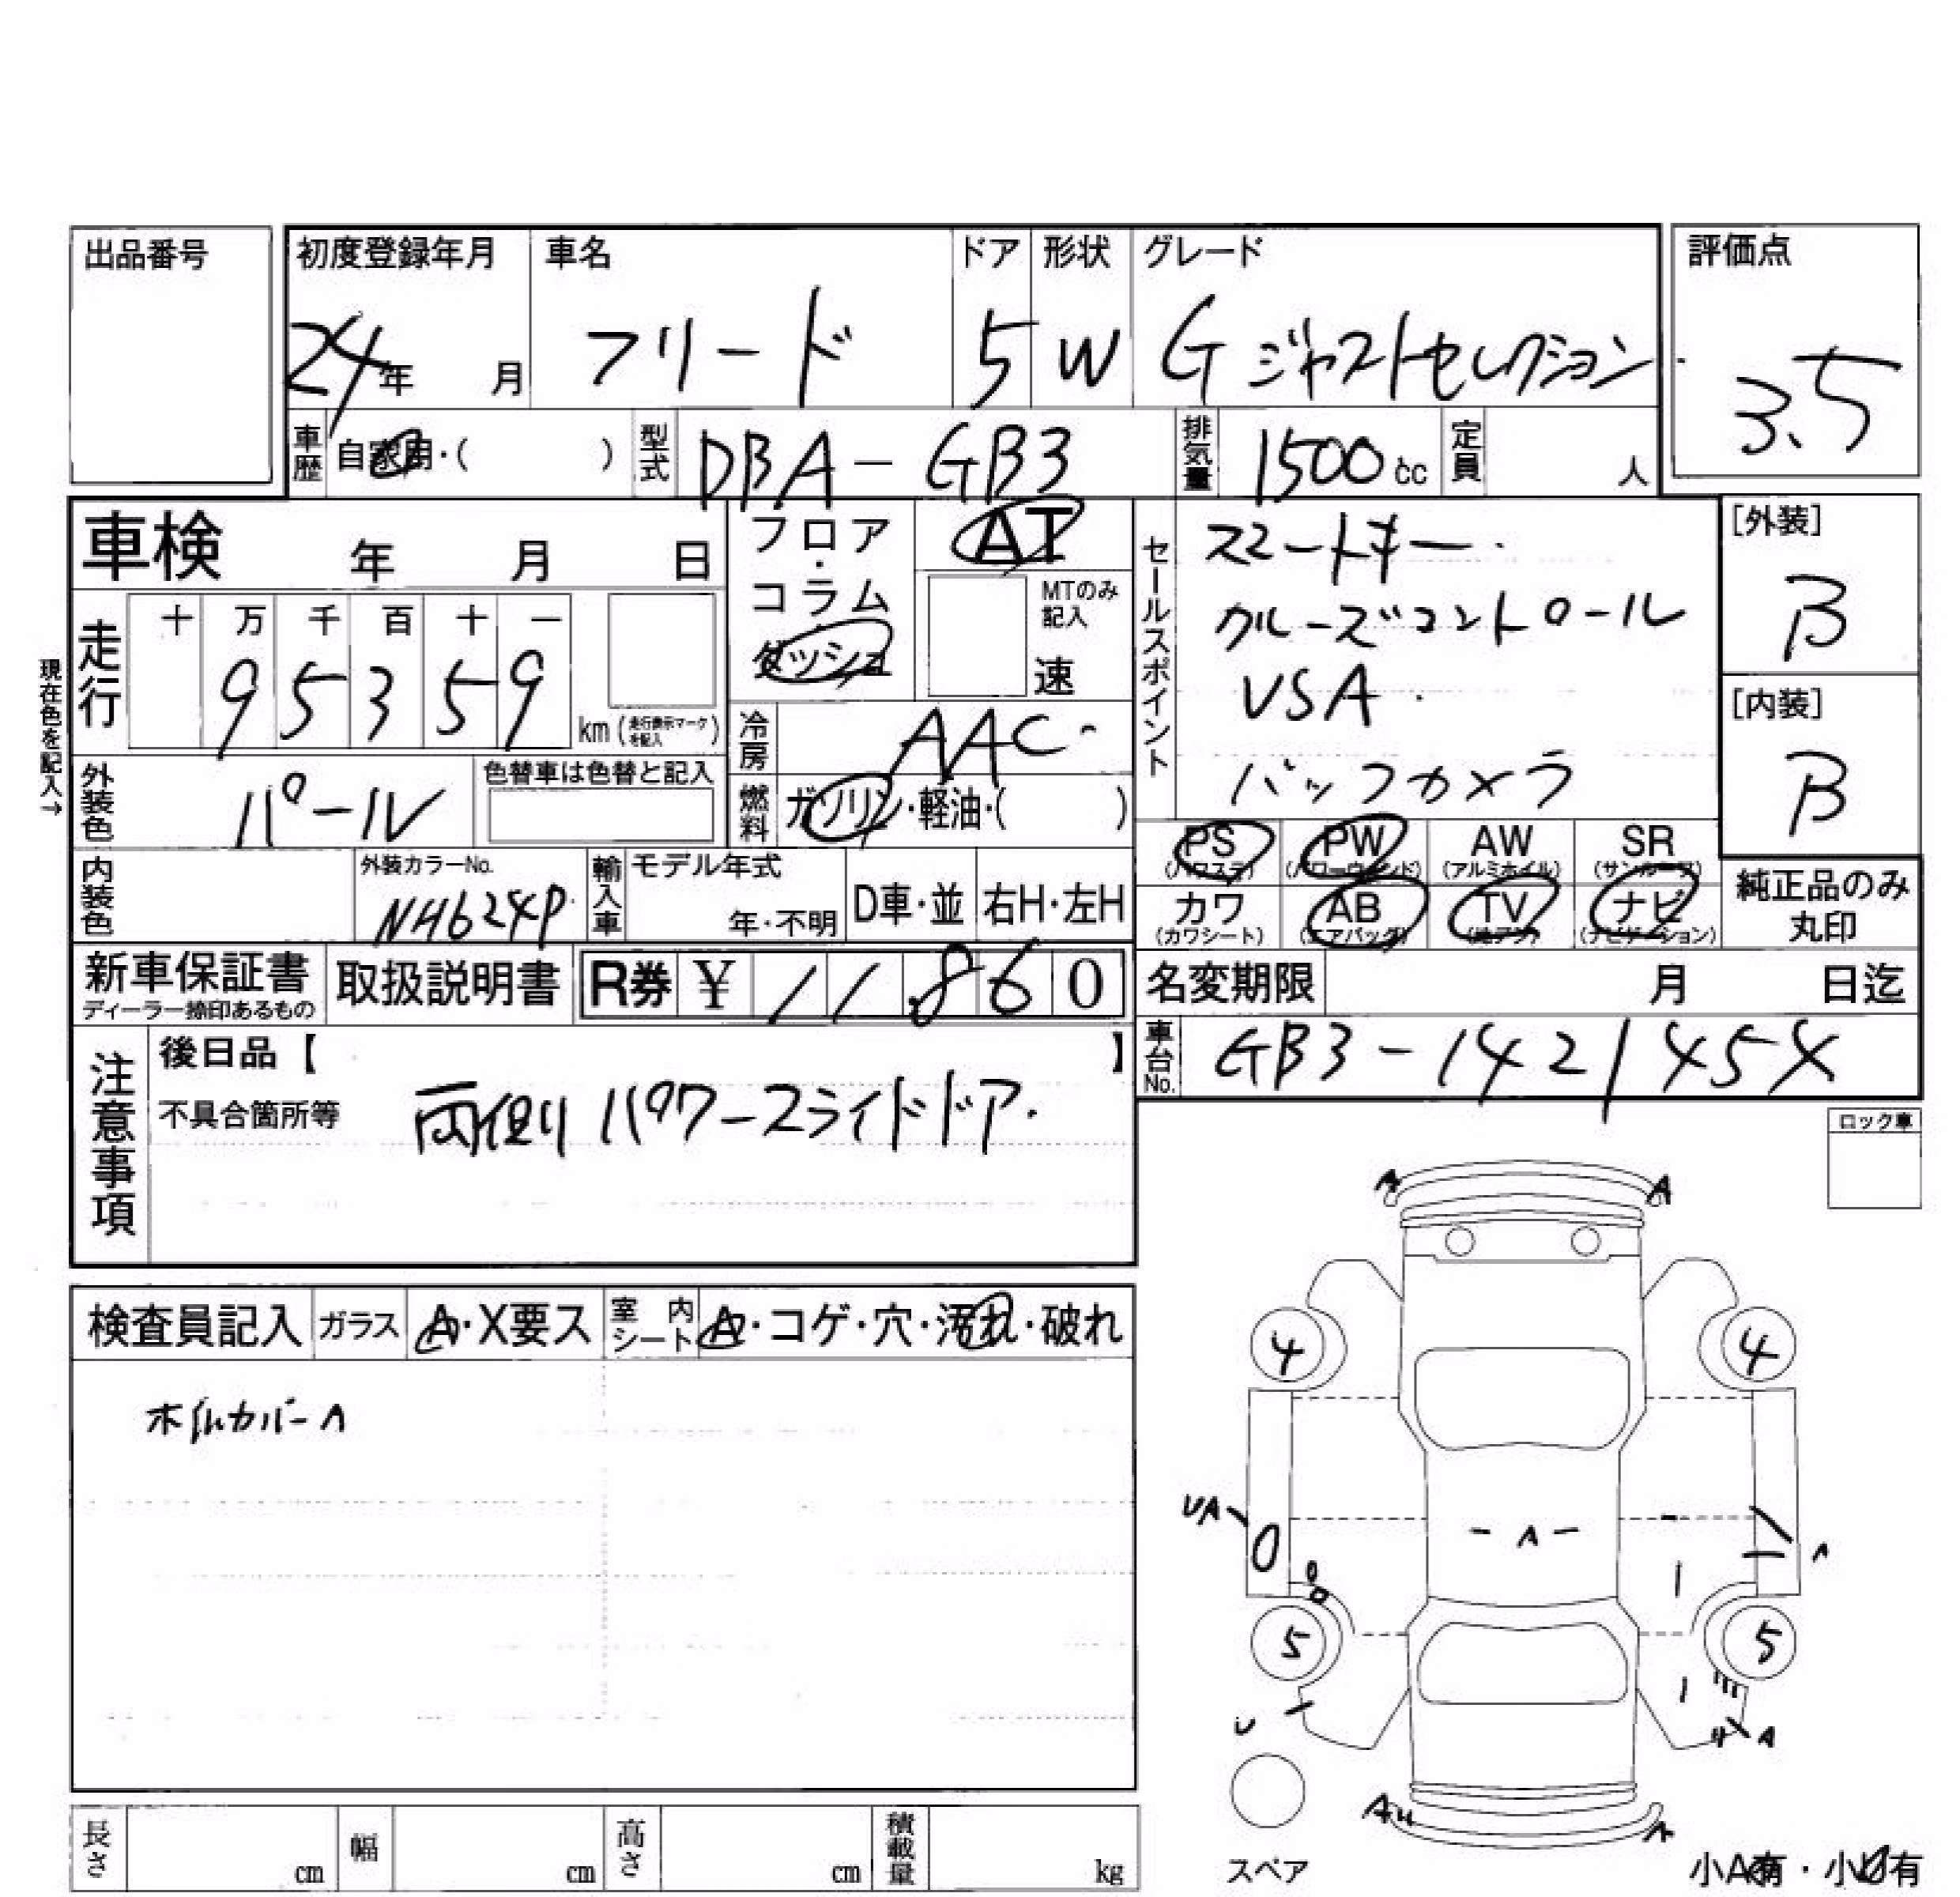 出品番号
初度登録年月 車名 ドア 形状 グレード 評価点
24年 月 フリード 5 W G ジャストセレクション 3.5
車歴 自家用・( ) 型式 DBA-GB3 排気量 1500cc 定員 人
車検 年 月 日
フロア・コラム ダッシュ
AT
MTのみ記入
速
セールスポイント
スマートキー
クルーズコントロール
VSA
バックカメラ
[外装]
B
[内装]
B
現在色を記入→
走行 十 万 千 百 十 一
9 5 3 5 9 km (走行表示マークを記入)
冷房 AAC
外装色 パール 色替車は色替と記入
燃料 ガソリン・軽油・( )
PS (パワステ) PW (パワーウィンド) AW (アルミホイル) SR (サンルーフ)
カワ (カワシート) AB (エアバッグ) TV (地デジ) ナビ (ナビゲーション)
純正品のみ丸印
内装色 外装カラーNo. NH624P 輸入車 モデル年式 年・不明 D車・並 右H・左H
新車保証書 ディーラー捺印あるもの 取扱説明書 R券 ¥ 11860
名変期限 月 日迄
車台No. GB3-1421454
注意事項 後日品【 】
不具合箇所等 両側パワースライドドア
ロック車
A A
検査員記入 ガラス A・X要ス 室内シート A・コゲ・穴・汚れ・破れ
4 4
ホイルカバーA
UA
A
A
5 5
U
A
スペア
A
長さ cm 幅 cm 高さ cm 積載量 kg
小A有・小U有